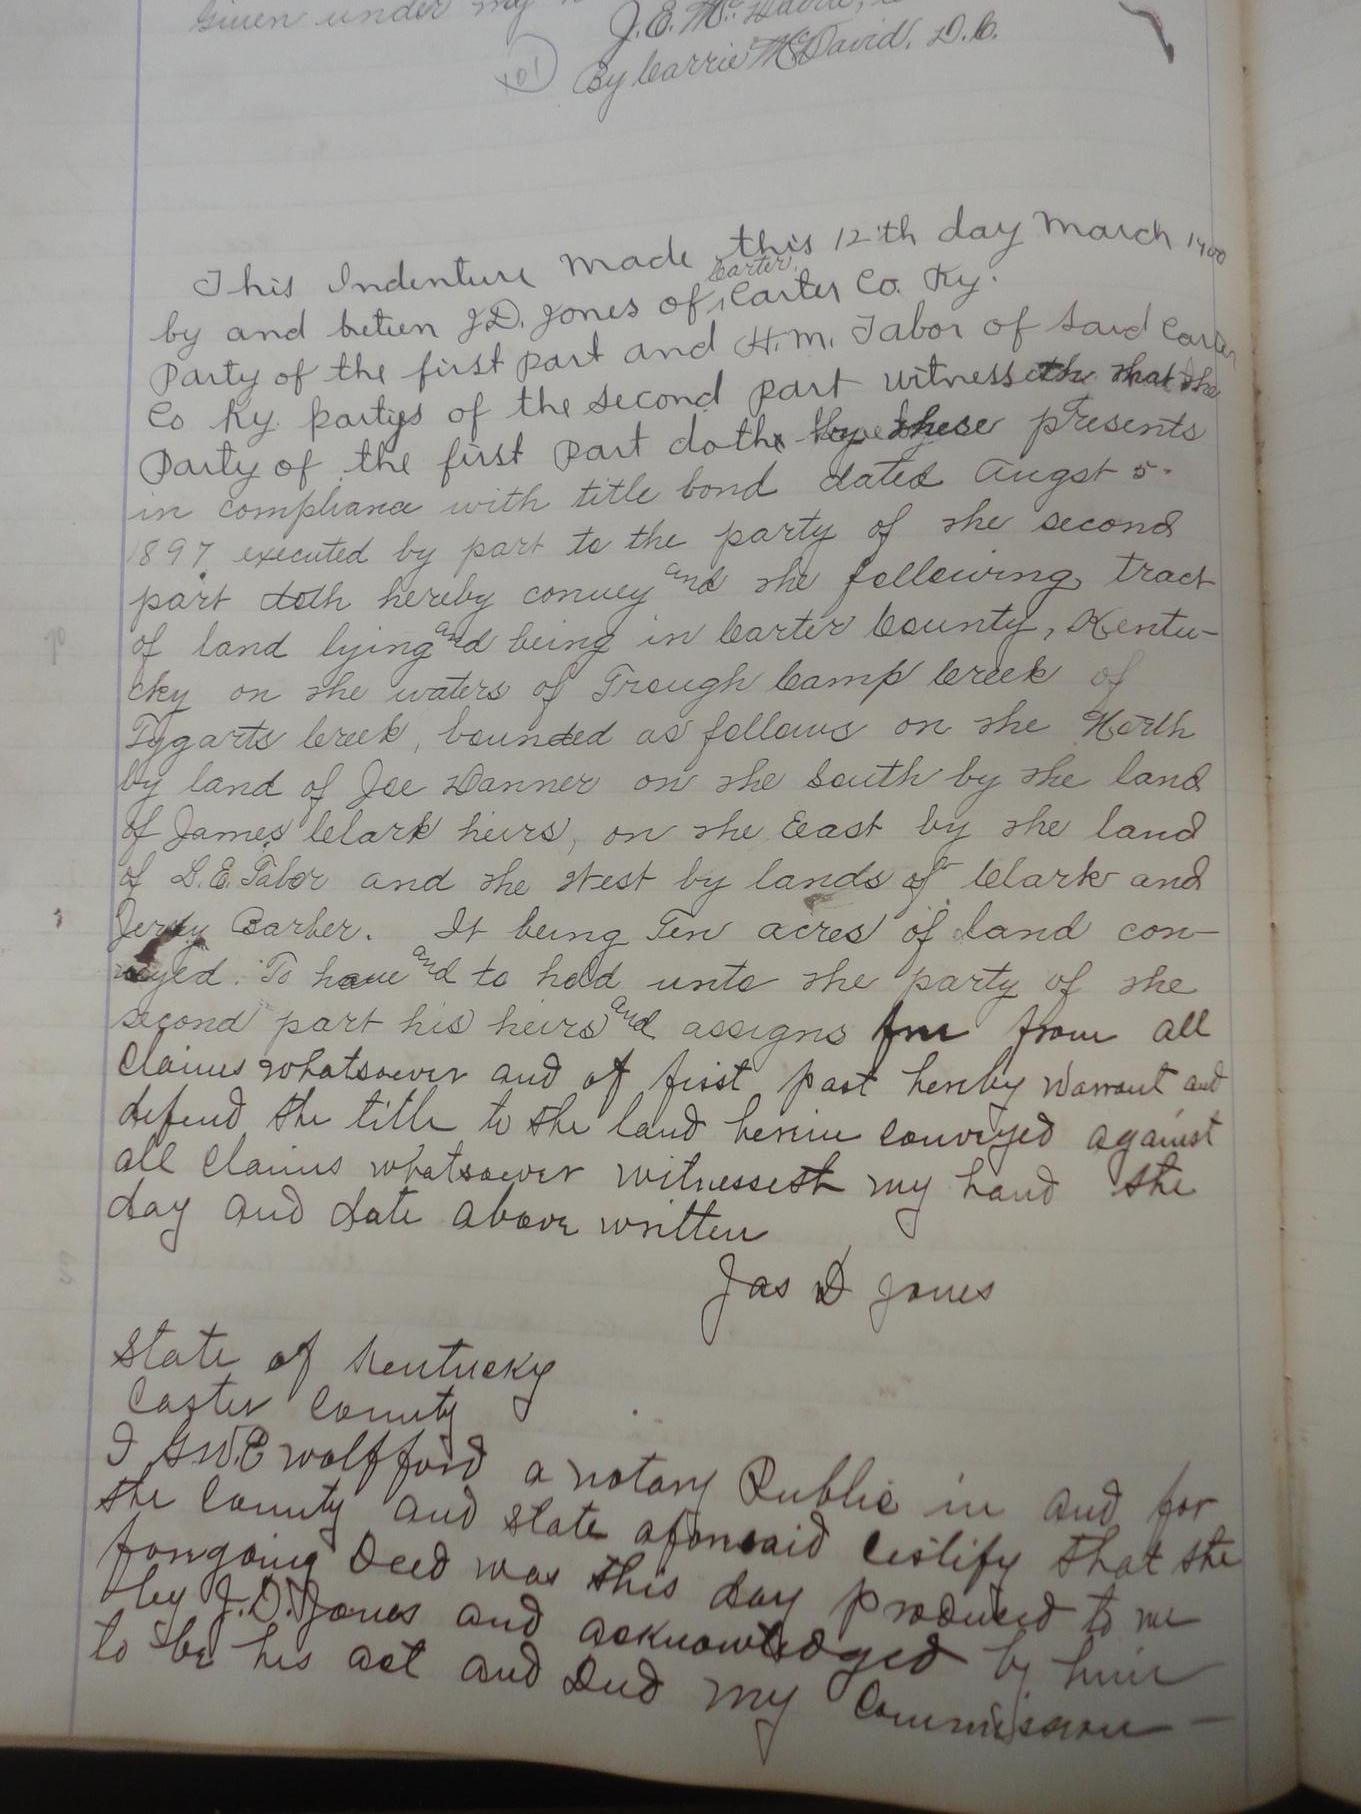 Given under my
J.E. McDavid,
By Carrie McDavid, D.C.
This Indenture Made this 12th day March 1900
by and betien J.D. Jones of Carter Carter Co. Ky.
Party of the first part and H.M. Tabor of Said Carter
Co Ky partys of the second part witnesseth that the
Party of the first Part doth by these presents
in compliance with title bond dated Augst 5-
1897 executed by part to the party of the second
part doth hereby convey and the following tract
of land lying and being in Carter County, Kentu-
cky on the waters of Trough Camp Creek of
Tygarts Creek, bounded as follows on the North
by land of Joe Danner on the South by the land
of James Clark heirs, on the East by the land
of L.E. Tabor and the West by lands of Clark and
Jerry Barber. It being Ten acres of land con-
veyed. To have and to hold unto the party of the
second part his heirs and assigns from all
Claims whatsoever and of first part hereby warrant and
defend the title to the land herein conveyed against
all Claims whatsoever witnesseth my hand the
day and date above written
Jas D Jones
State of Kentucky
Carter County
I G.W.C wolfford a notary Public in and for
the County and State aforesaid certify that the
forgoing Deed was this day produced to me
by J.D. Jones and acknowledged by him
to be his act and Deed my Commission -